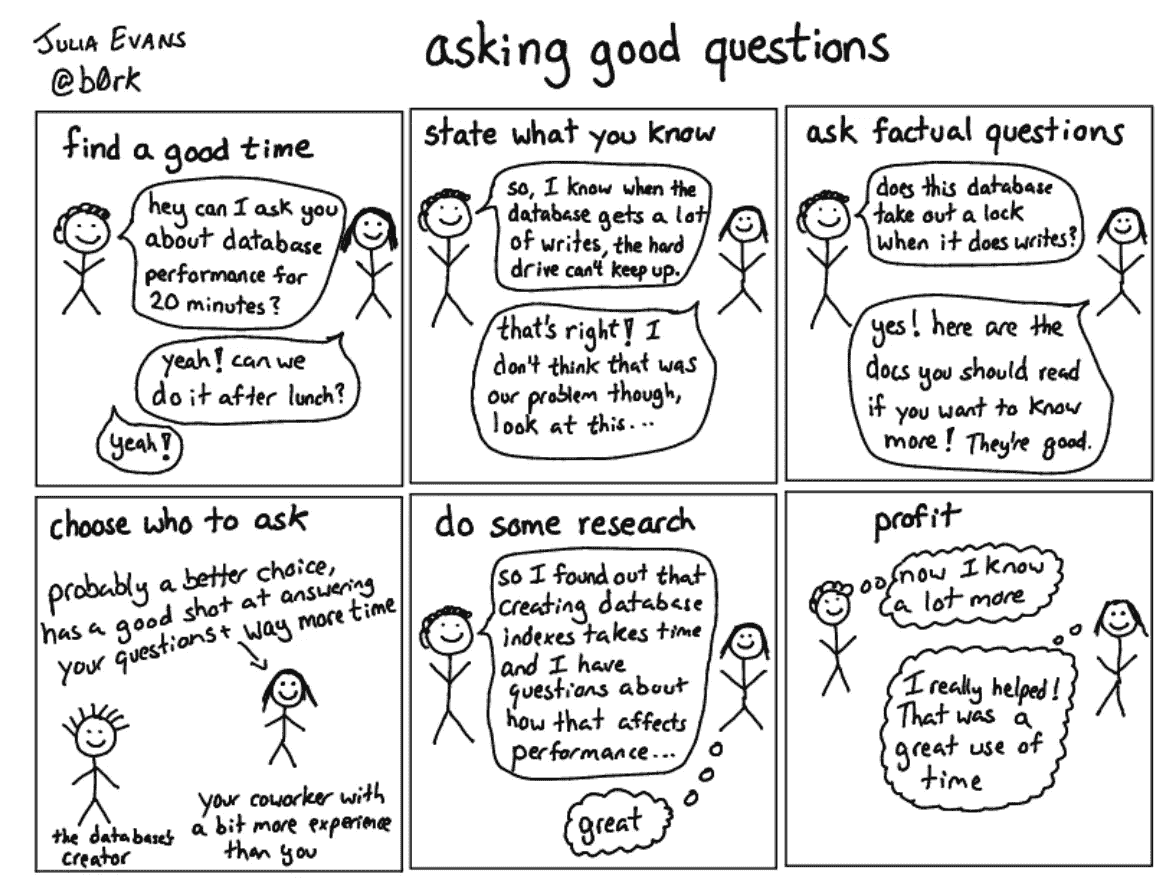 JULIA EVANS
@b0rk
asking good questions
find a good time
hey can I ask you
about database
performance for
20 minutes?
yeah! can we
do it after lunch?
yeah!
state what you know
so, I know when the
database gets a lot
of writes, the hard
drive can't keep up.
that's right! I
don't think that was
our problem though,
look at this...
ask factual questions
does this database
take out a lock
when it does writes?
yes! here are the
docs you should read
if you want to know
more! They're good.
choose who to ask
probably a better choice,
has a good shot at answering
your questions + way more time
the database's
creator
your coworker with
a bit more experience
than you
do some research
so I found out that
creating database
indexes takes time
and I have
questions about
how that affects
performance...
great
profit
now I know
a lot more
I really helped!
That was a
great use of
time